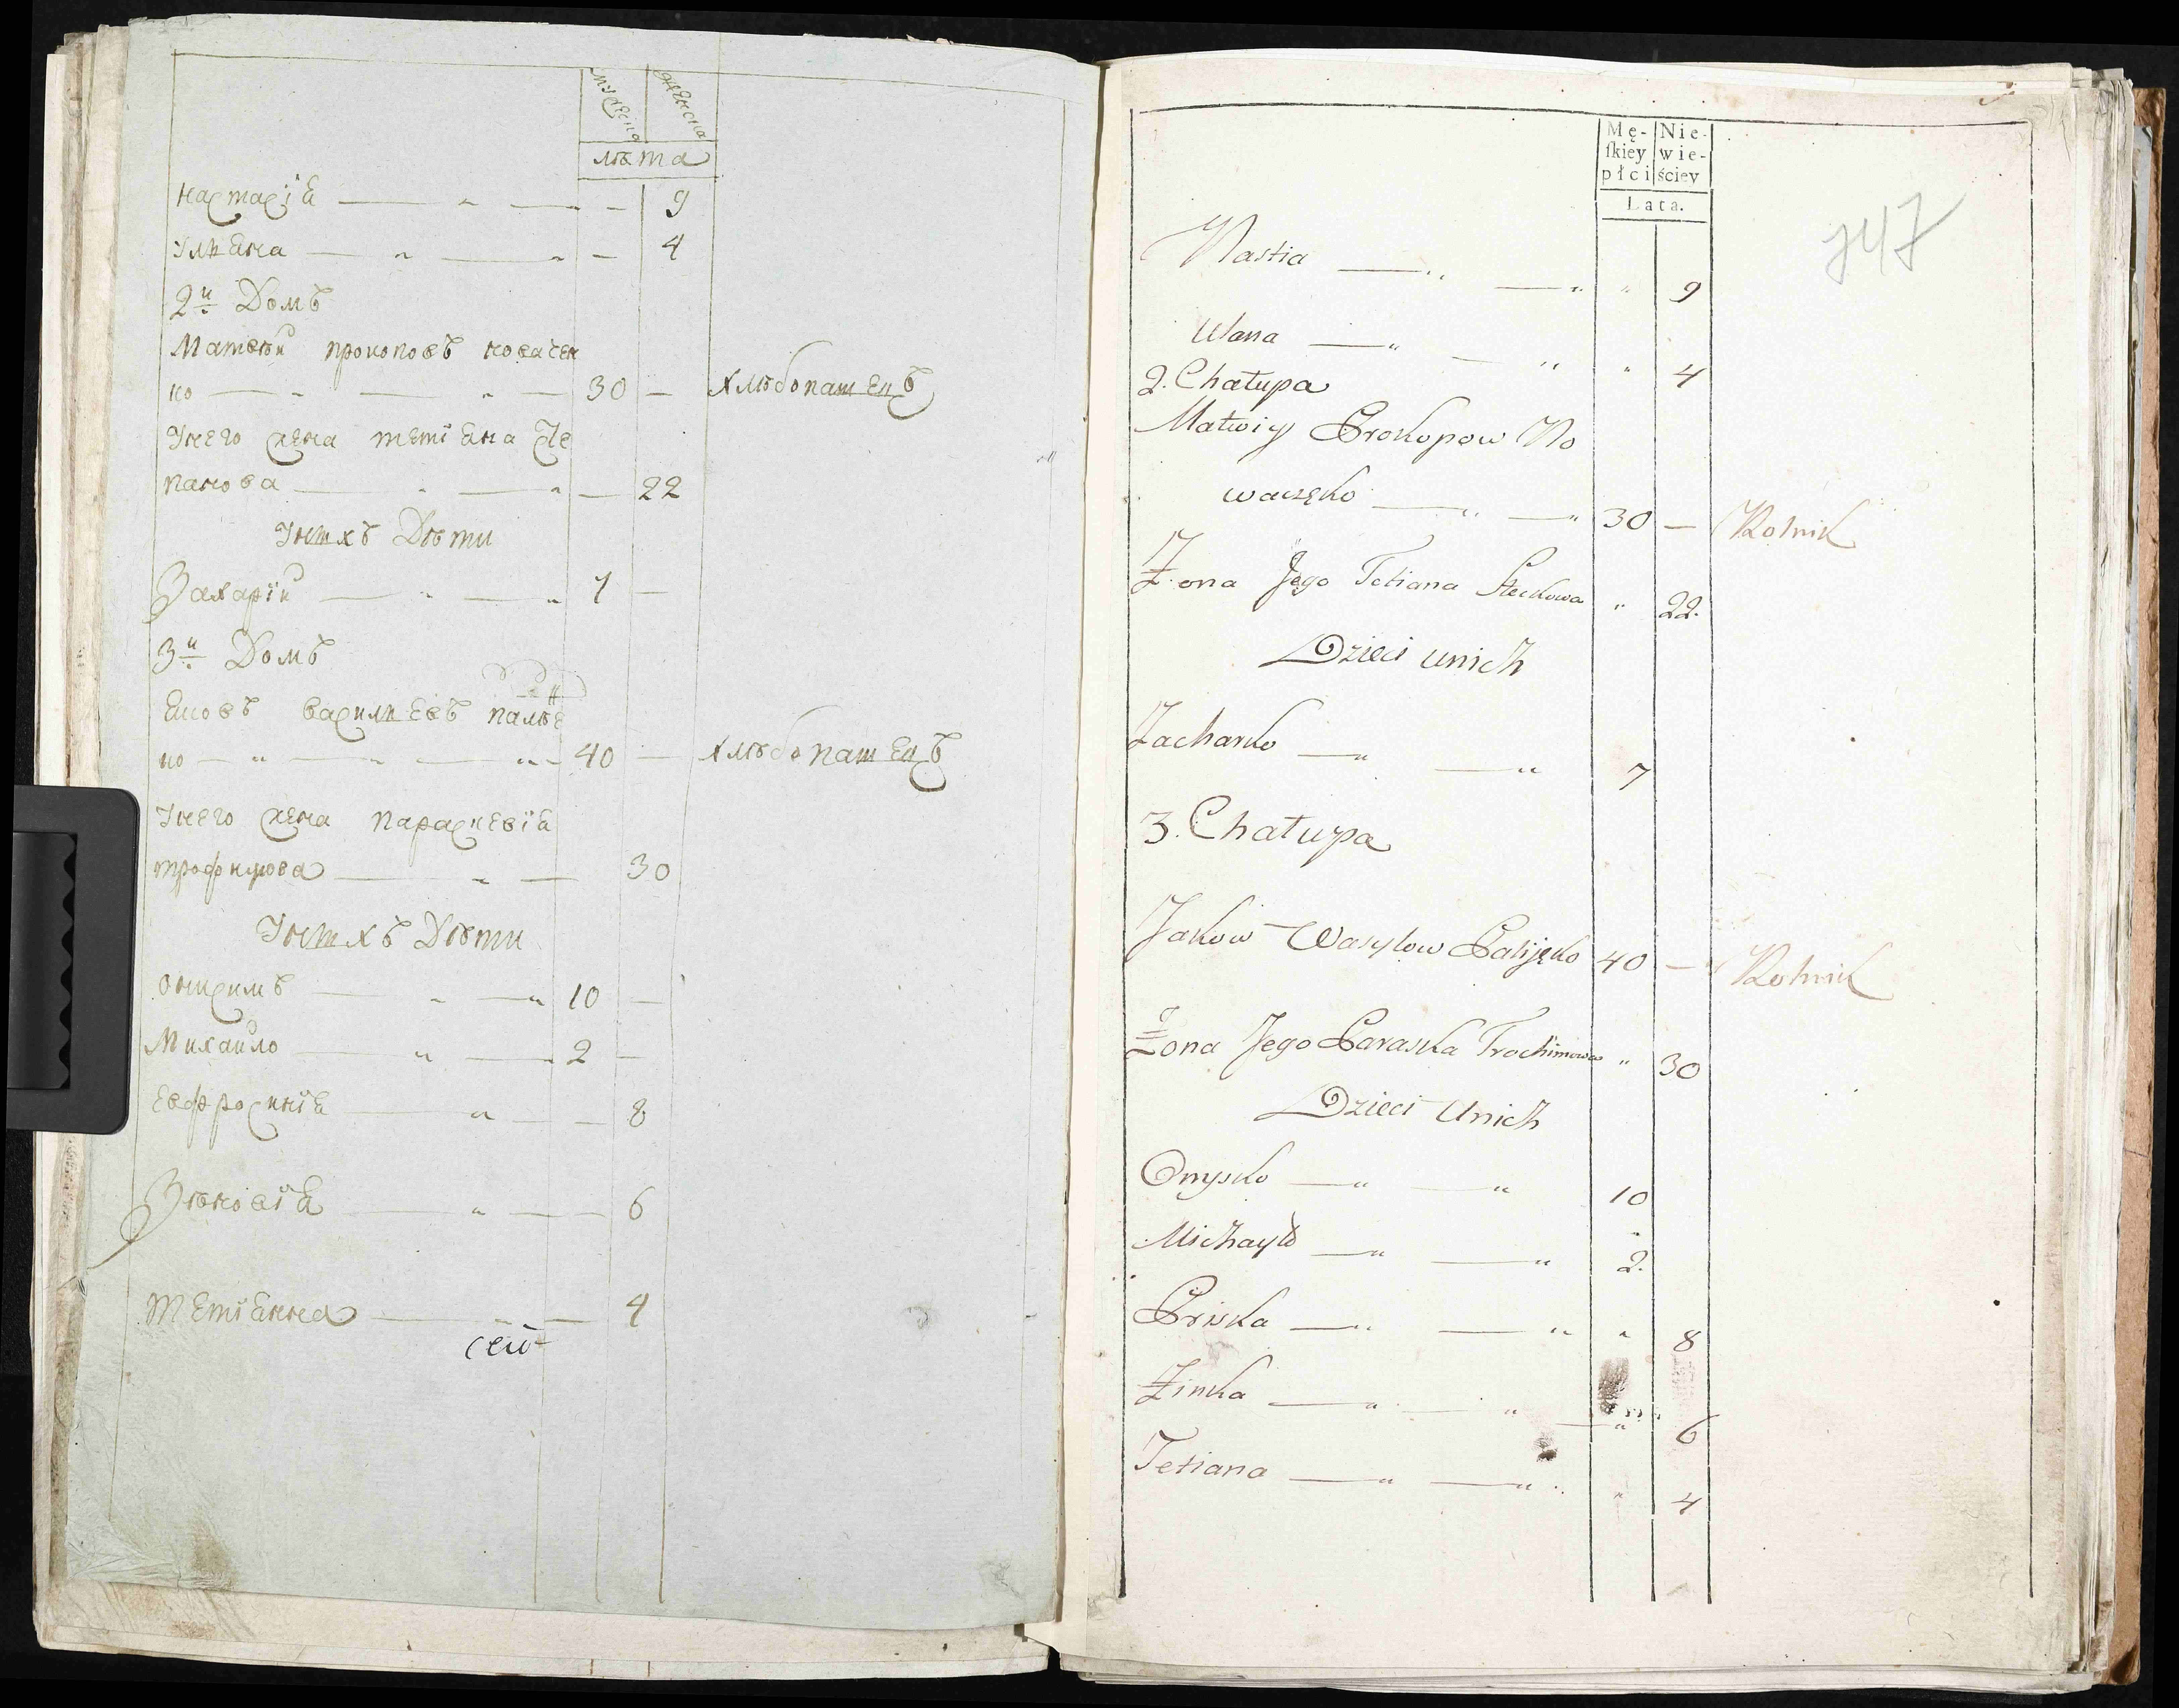 мужеска женска
лѣта
настасїя 9
улияна 4
2й Домъ
Матвѣй прокоповъ новачен
ко 30 — хлѣбопашецъ
У него жена тетїяна Сте
панова 22
У них Дѣти
Захарїй 7 —
3й Домъ
яковъ васильевъ палѣен
ко 40 — хлѣбопашецъ
У него жена параскевїя
трофимова 30
У них Дѣти
онисимъ 10 —
Михаило 2 —
евфросинїя 8
Зѣновїя 6
Тетїянна 4
Mę- Nie-
ſkiey wie-
płci ściey
Lata.
747
Nastia 9
Ulana 4
2. Chałupa
Matwiy Prokopow No
waczęko 30 — Rolnik
Żona Jego Tetiana Steckowa 22.
Dzieci unich
Zacharko 7
3. Chałupa
Jakow Wasylow Palijęko 40 — Rolnik
Żona Jego Paraska Trochimowa 30
Dzieci Unich
Onysko 10
Michayło 2.
Priska 8
Zinka 6
Tetiana 4